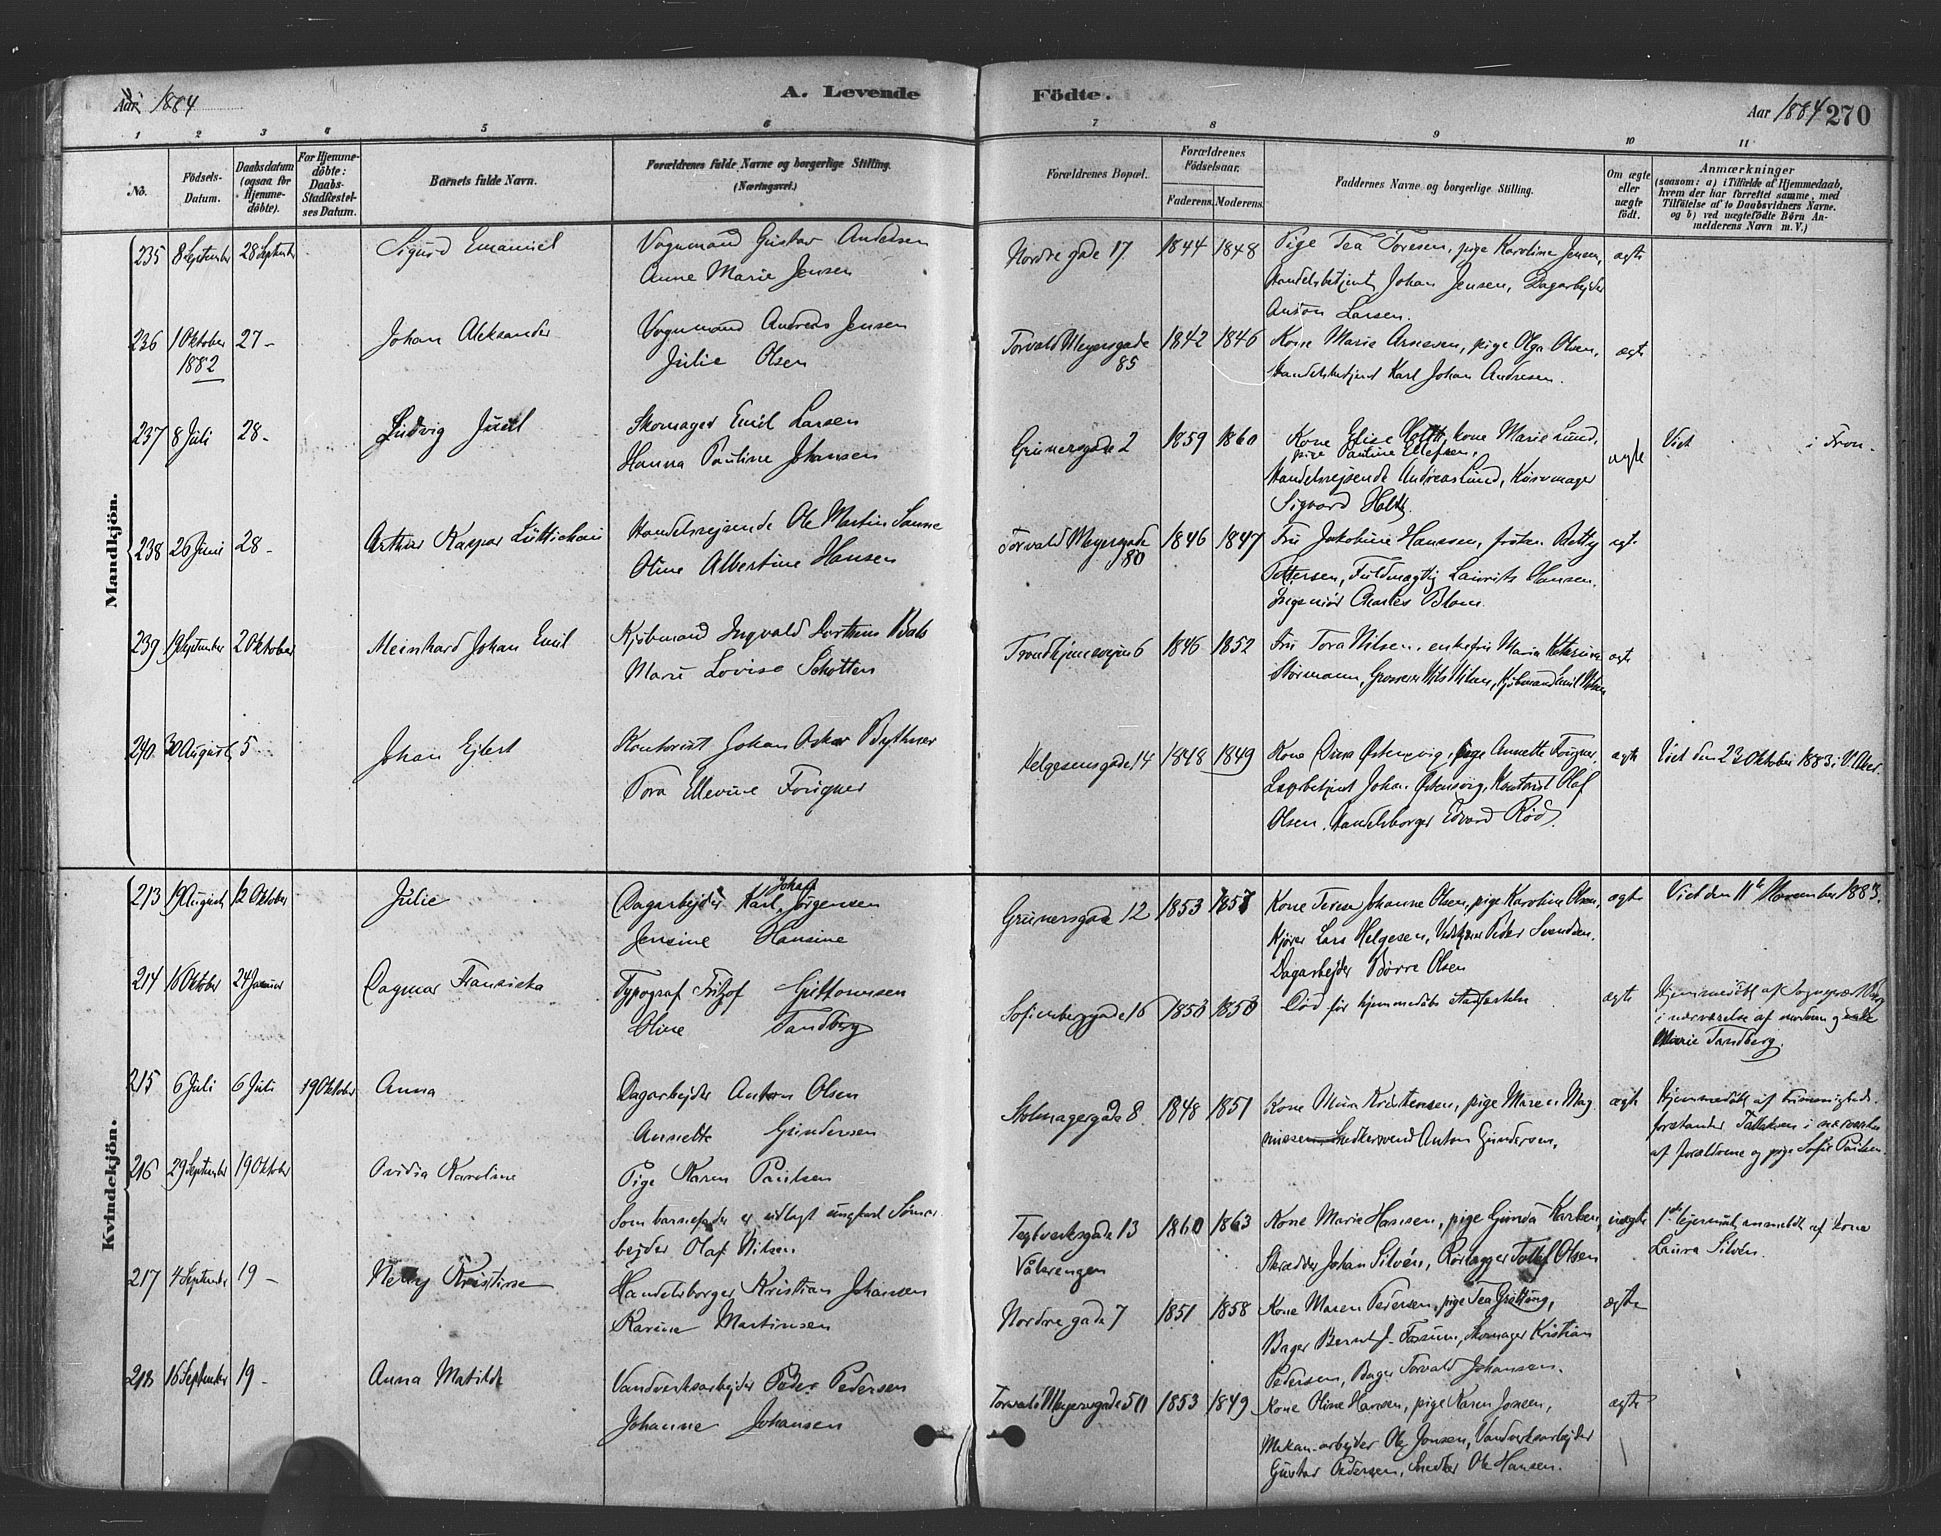 Aar 1884 A. Levende Födte. Aar 1884 270
1 2 3 4 5 6 7 8 9 10 11
No. Födsels-Datum. Daabsdatum (ogsaa for Hjemme-döbte). For Hjemme-döbte: Daabs-Stadfæstel-ses Datum. Barnets fulde Navn. Forældrenes fulde Navne og borgerlige Stilling. (Næringsvei.) Forældrenes Bopæl. Forældrenes Födselsaar. Faderens. Moderens. Faddernes Navne og borgerlige Stilling. Om ægte eller uægte födt. Anmærkninger (saasom: a) i Tilfælde af Hjemmedaab, hvem der har forrettet samme, med Tilföielse af to Daabsvidners Navne, og b) ved uægtefödte Börn An-melderens Navn m. V.)
Mandkjön.
235 8 September 28 September Sigurd Emanuel Vognmand Gustav Andersen Nordre gade 17 1844 1848 Pige Tea Toresen, pige Karoline Jensen, ægte
Anne Marie Jensen Handelsbetjent Johan Jensen, Dagarbejder
Anton Larsen.
236 1 Oktober 1882 27 - Johan Aleksander Vognmand Andreas Jensen Torvald Meyersgade 85 1842 1846 Kone Marie Arnesen, pige Olga Olsen, ægte
Julie Olsen Handelsbetjent Karl Johan Andresen.
237 8 Juli 28 - Ludvig Juul Skomager Emil Larsen Grünersgade 2 1859 1860 Kone Elise Holth, kone Marie Lund, ægte Viet i Fron.
pige Pauline Ellefsen,
Hanna Pauline Johansen Handelsrejsende Andreas Lund, Kurvmager
Sigvard Holth.
238 26 Juni 28 - Arthur Kaspar Lüttichau Handelsrejsende Ole Martin Sanne Torvald Meyersgade 80 1846 1847 Fru Jakobine Hanssen, frøken Betty ægt.
Oline Albertine Hansen Pettersen, Fuldmægtig Laurits Hansen,
Ingeniør Charles Blom.
239 19 September 2 Oktober Meinhard Johan Emil Kjøbmand Ingvald Dorthius Bals Trondhjemsvejen 6 1846 1852 Fru Tora Nilsen, enkefru Maria Katarine ægte
Marie Lovise Schøtten Størmann, Grosserer Nils Nilsen, Kjøbmand Emil Nilsen
240 30 August 5 Johan Ejlert Kontorist Johan Oskar Bythner Helgesensgade 14 1848 1849 Kone Dina Østensvig, pige Annette Forigner, ægte Viet den 23 Oktober 1883 i V. Aker.
Tora Ellevine Forigner Lagerbetjent Johan Østensvig, Kontorist Olaf
Olsen, Handelsborger Edvard Rød.
Kvindekjön.
213 19 August 12 Oktober Julie Dagarbejder Karl Johan Jørgensen Grünersgade 12 1853 1857 Kone Terese Johanne Olsen, pige Karoline Olsen, ægte Viet den 11te November 1883.
Jensine Hansine Kjører Lars Helgesen, Vedskjærer Peder Svendsen,
Dagarbejder Børre Olsen
214 16 Oktober 24 Januar Dagmar Fransiska Typograf Fritjof Guttormsen Sofienberggade 16 1853 1853 Død før hjemmedåbs stadfæstelse ægte Hjemmedøbt af Sogneprest
Oline Tandberg i nærværelse af moderen og
Marie Tandberg.
215 6 Juli 6 Juli 19 Oktober Anna Dagarbejder Anton Olsen Stolmagergade 8 1848 1851 Kone Mina Kristensen, pige Maren Mag ægte Hjemmedøbt af
Annette Gundersen nusen Snedkersvend Anton Gundersen, forstander i nærværelse
216 29 September 19 Oktober Ovidia Karoline Pige Karen Paulsen af forældrene og pige Sofie Paulsen.
Som barnefader er udlagt ungkarl Sømar Teglverksgade 13 1860 1863 Kone Marie Hansen, pige Gunda Karlsen, uægte anmeldt af kone
bejder Olaf Nilsen Vålerengen Skrædder Johan Silvén, Rørlægger Tollef Olsen Laura Silvén.
217 4 September 19 - Nelly Kristine Handelsborger Kristian Johansen Nordre gade 7 1851 1858 Kone Maren Pedersen, pige Tea Grøttung, ægte
Karine Martinsen Bager Bernt J. Fossum, Skomager Kristian
Pedersen, Bager Torvald Johansen.
218 16 September 19 - Anna Matilde Vandverksarbejder Peder Pedersen Torvald Meyersgade 50 1853 1849 Kone Oline Hansen, pige Karen Jonsen, ægte
Johanne Johansen Mekan. arbejder Ole Jonsen, Vandverksarbejder
Gustav Pedersen, Snedker Ole Hansen.